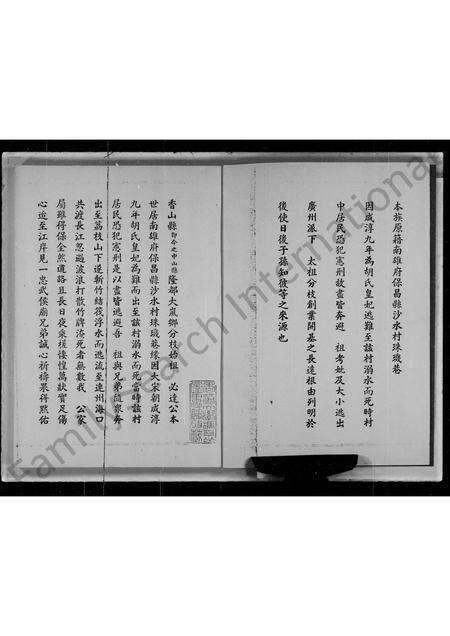 本族原籍南雄府保昌縣沙水村珠璣巷
因咸淳九年為胡氏皇妃逃難至該村溺水而死時村
中居民恐犯憲刑故盡皆奔避 祖考妣及大小逃出
廣州派下 太祖分枝創業開基之長遠根由列明於
後使日後子孫知彼等之來源也
香山縣即今之中山縣隆都大嵐鄉分枝始祖 必達公本
世居南雄府保昌縣沙水村珠璣巷緣因大宋朝咸淳
九年胡氏皇妃為難而出至該村溺水而死當時該村
居民恐犯憲刑是以盡皆逃避吾 祖與兄弟隨眾奔
出至荔枝山下逐斬竹結筏浮水而逃流至連州海口
共渡長江忽遇波浪打散竹牌淹死者無數我 公家
眉雖得保全然道路且長日夜采樵悽惶萬狀實足傷
心迨至江岸見一忠武侯廟兄弟誠心祈禱果得黙佑
FamilySearch International